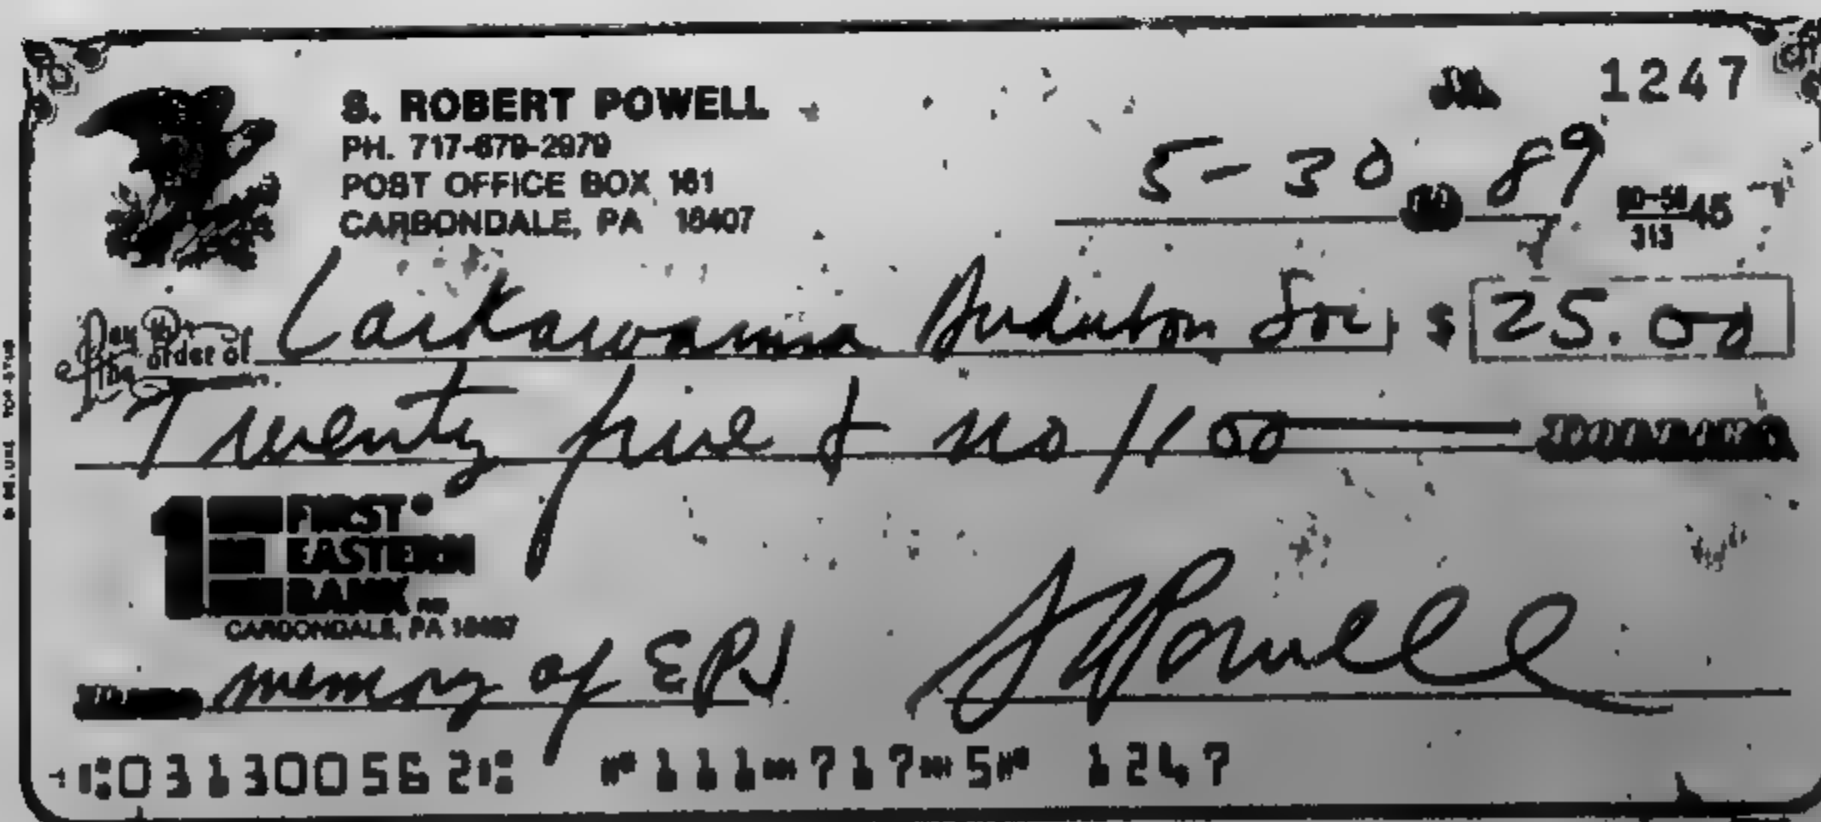 1247
S. ROBERT POWELL
PH. 717-679-2979
POST OFFICE BOX 161
CARBONDALE, PA 18407
5-30 89
60-56 45
313
Pay to the order of Lackawanna Audubon Soc $ 25.00
Twenty five & no/100
1 FIRST EASTERN BANK NA
CARBONDALE, PA 18407
memory of EPJ S R Powell
⑆031300562⑆ ⑈111⑉717⑉5⑈ 1247